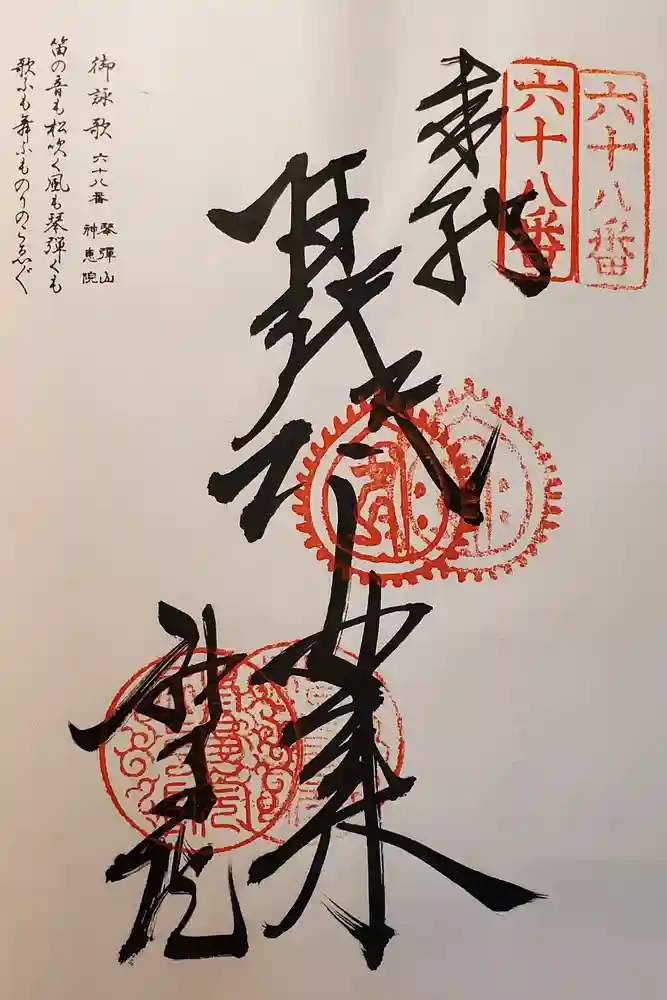 六十八番
六十八番
奉納
阿弥陀如来
神恵院
御詠歌 六十八番 琴彈山 神恵院
笛の音も松吹く風も琴彈くも
歌ふも舞ふものりのこゑ〴〵